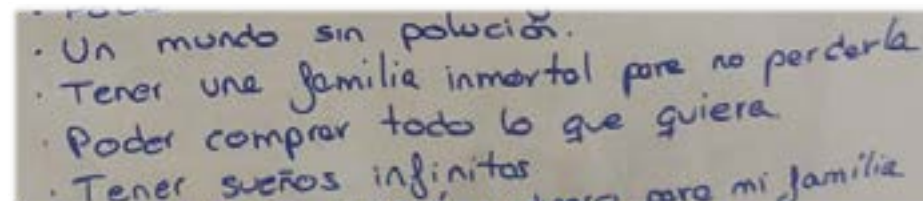 · Un mundo sin polución.
· Tener una familia inmortal para no perderla
· Poder comprar todo lo que quiera
· Tener sueños infinitos
para mi familia